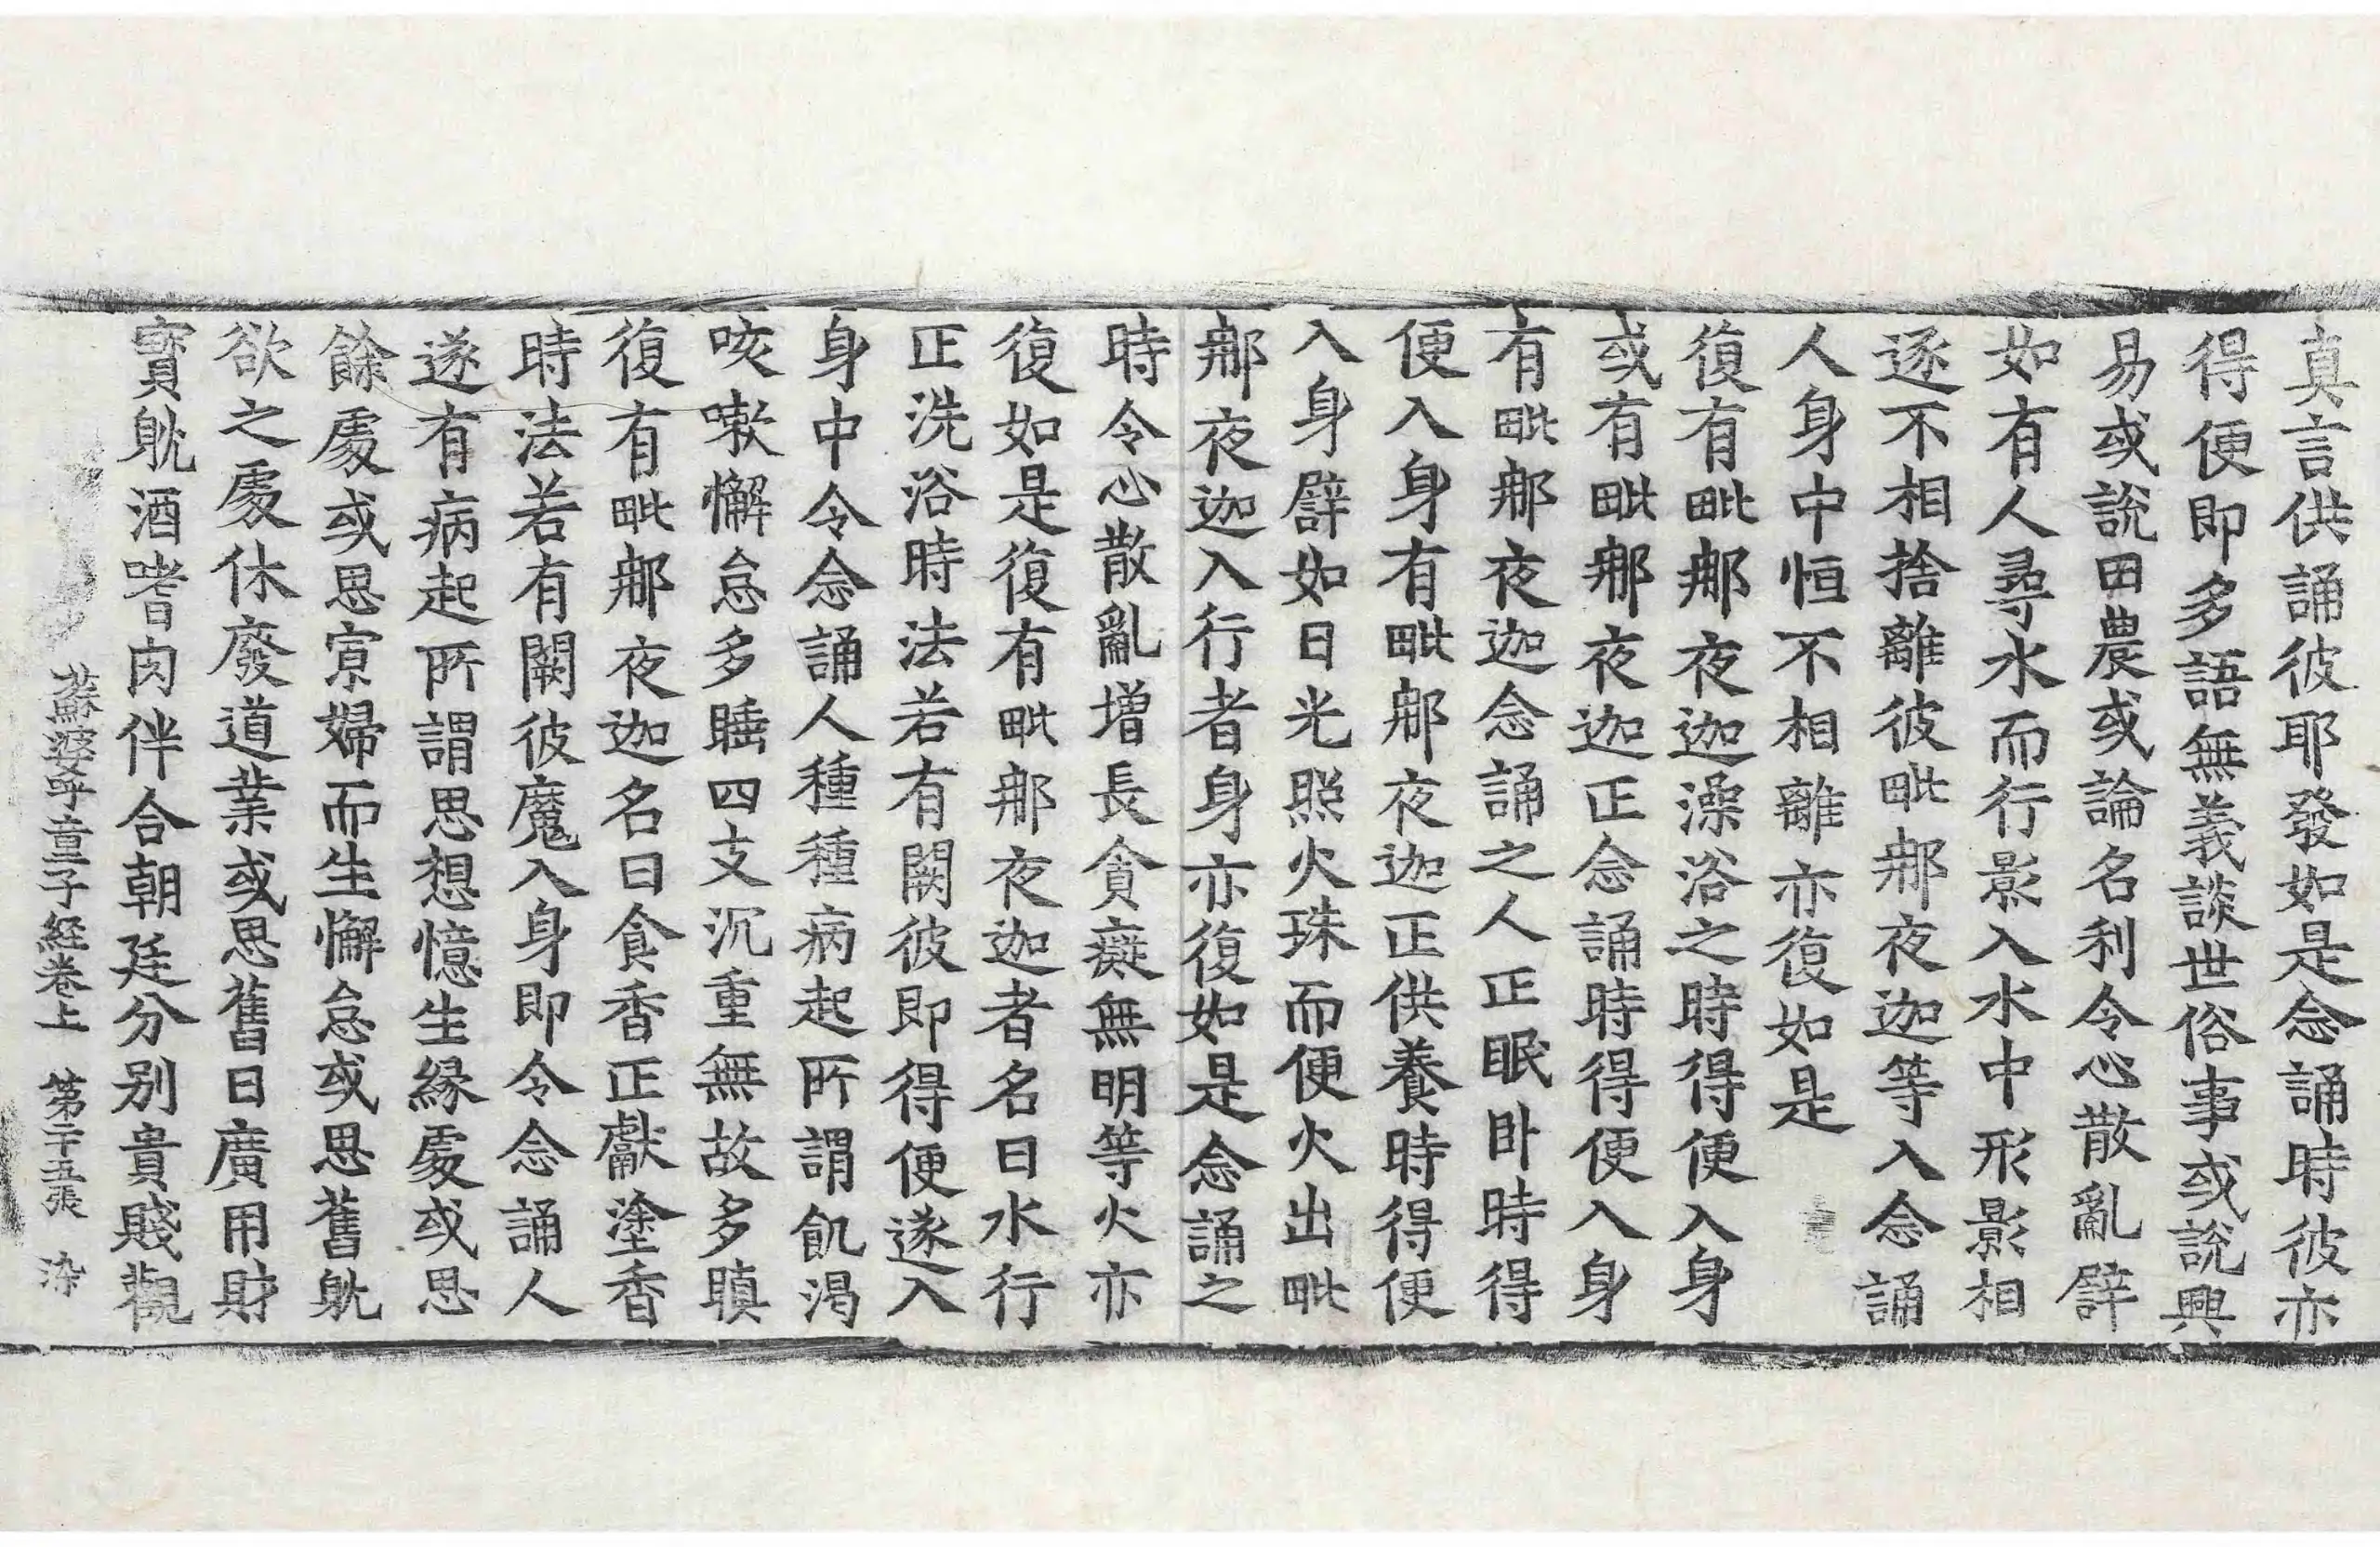 真言供誦彼耶發如是念誦時彼亦
得便即多語無義談世俗事或說興
易或說田農或論名利令心散亂譬
如有人尋水而行影入水中形影相
逐不相捨離彼毗那夜迦等入念誦
人身中恒不相離亦復如是
復有毗那夜迦澡浴之時得便入身
或有毗那夜迦正念誦時得便入身
有毗那夜迦念誦之人正眠卧時得
便入身有毗那夜迦正供養時得便
入身譬如日光照火珠而便火出毗
那夜迦入行者身亦復如是念誦之
時令心散亂增長貪癡無明等火亦
復如是復有毗那夜迦者名曰水行
正洗浴時法若有闕彼即得便遂入
身中令念誦人種種病起所謂飢渴
咳嗽懈怠多睡四支沉重無故多瞋
復有毗那夜迦名曰食香正獻塗香
時法若有闕彼魔入身即令念誦人
遂有病起所謂思想憶生緣處或思
餘處或思寡婦而生懈怠或思舊躭
欲之處休廢道業或思舊日廣用財
寶躭酒嗜肉伴合朝廷分別貴賤觀
蘇婆呼童子經卷上　第二十五張　染